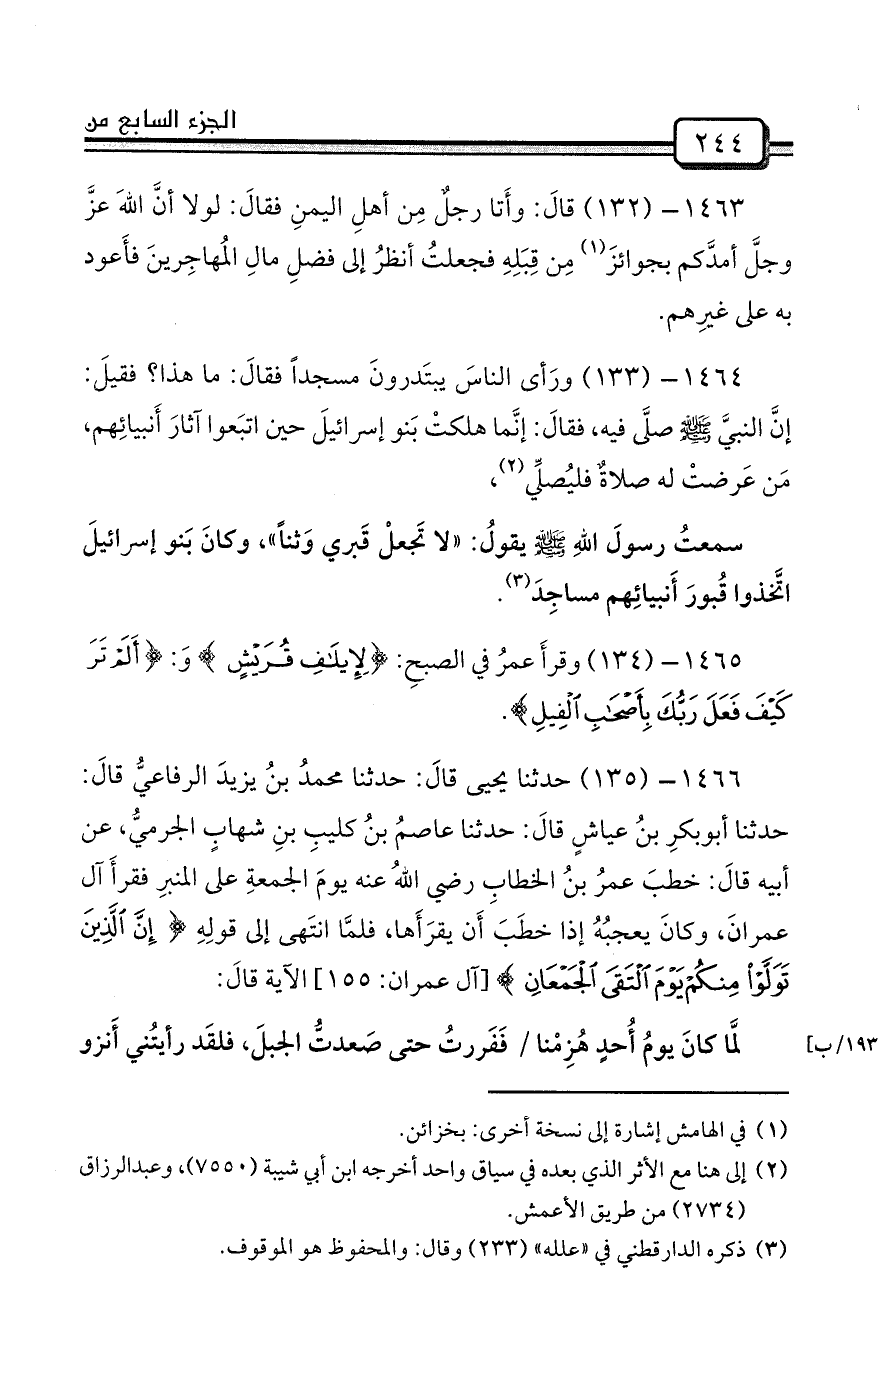 الجزء السابع من
٢٤٤
١٤٦٣ – (١٣٢) قالَ: وأَتا رجلٌ مِن أهلِ اليمنِ فقالَ: لولا أنَّ اللهَ عزَّ
وجلَّ أمدَّكم بجوائزَ(١) مِن قِبَلِهِ فجعلتُ أنظرُ إلى فضلِ مالِ المُهاجرينَ فأَعود
به على غيرِهم.
١٤٦٤ – (١٣٣) ورَأى الناسَ يبتَدرونَ مسجداً فقالَ: ما هذا؟ فقيلَ:
إنَّ النبيَّ ﷺ صلَّى فيه، فقالَ: إنَّما هلكتْ بَنو إسرائيلَ حين اتبَعوا آثارَ أَنبيائِهم،
مَن عَرضتْ له صلاةٌ فليُصلِّي(٢)،
سمعتُ رسولَ اللهِ ﷺ يقولُ: «لا تَجعلْ قَبري وَثناً»، وكانَ بَنو إسرائيلَ
اتَّخذوا قُبورَ أَنبيائِهم مساجِدَ(٣).
١٤٦٥ – (١٣٤) وقرأَ عمرُ في الصبحِ: ﴿لِإِيلَٰفِ قُرَيْشٍ﴾ وَ: ﴿أَلَمْ تَرَ
كَيْفَ فَعَلَ رَبُّكَ بِأَصْحَٰبِ ٱلْفِيلِ﴾.
١٤٦٦ – (١٣٥) حدثنا يحيى قالَ: حدثنا محمدُ بنُ يزيدَ الرفاعيُّ قالَ:
حدثنا أبوبكرِ بنُ عياشٍ قالَ: حدثنا عاصمُ بنُ كليبِ بنِ شهابٍ الجرميُّ، عن
أبيه قالَ: خطبَ عمرُ بنُ الخطابِ رضي اللهُ عنه يومَ الجمعةِ على المنبرِ فقرأَ آل
عمرانَ، وكانَ يعجبُهُ إذا خطَبَ أَن يقرَأَها، فلمَّا انتَهى إلى قولِهِ ﴿إِنَّ ٱلَّذِينَ
تَوَلَّوْا۟ مِنكُمْ يَوْمَ ٱلْتَقَى ٱلْجَمْعَانِ﴾ [آل عمران: ١٥٥] الآية قالَ:
لمَّا كانَ يومُ أُحدٍ هُزِمْنا / فَفَررتُ حتى صَعدتُّ الجبلَ، فلقَد رأيتُني أَنزو
١٩٣/ب]
(١) في الهامش إشارة إلى نسخة أخرى: بخزائن.
(٢) إلى هنا مع الأثر الذي بعده في سياق واحد أخرجه ابن أبي شيبة (٧٥٥٠)، وعبدالرزاق
(٢٧٣٤) من طريق الأعمش.
(٣) ذكره الدارقطني في «علله» (٢٣٣) وقال: والمحفوظ هو الموقوف.